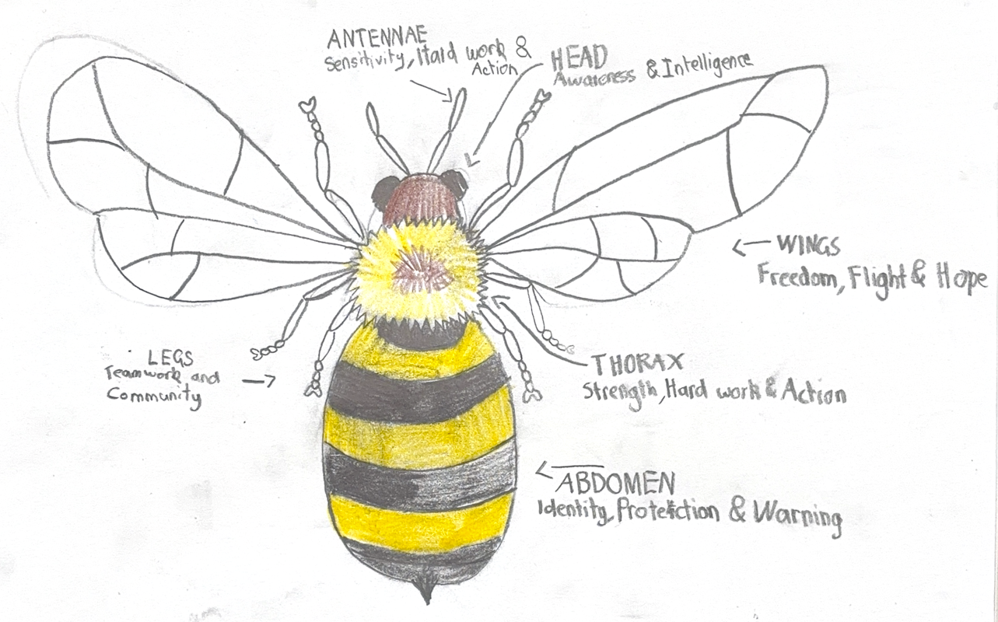 ANTENNAE
Sensitivity, Hard work &
Action
HEAD
Awareness & Intelligence
WINGS
Freedom, Flight & Hope
LEGS
Teamwork and
Community
THORAX
Strength, Hard work & Action
ABDOMEN
Identity, Protection & Warning